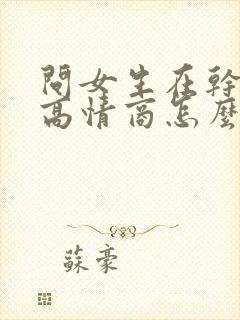 問女生在幹
高情商怎麼
蘇豪